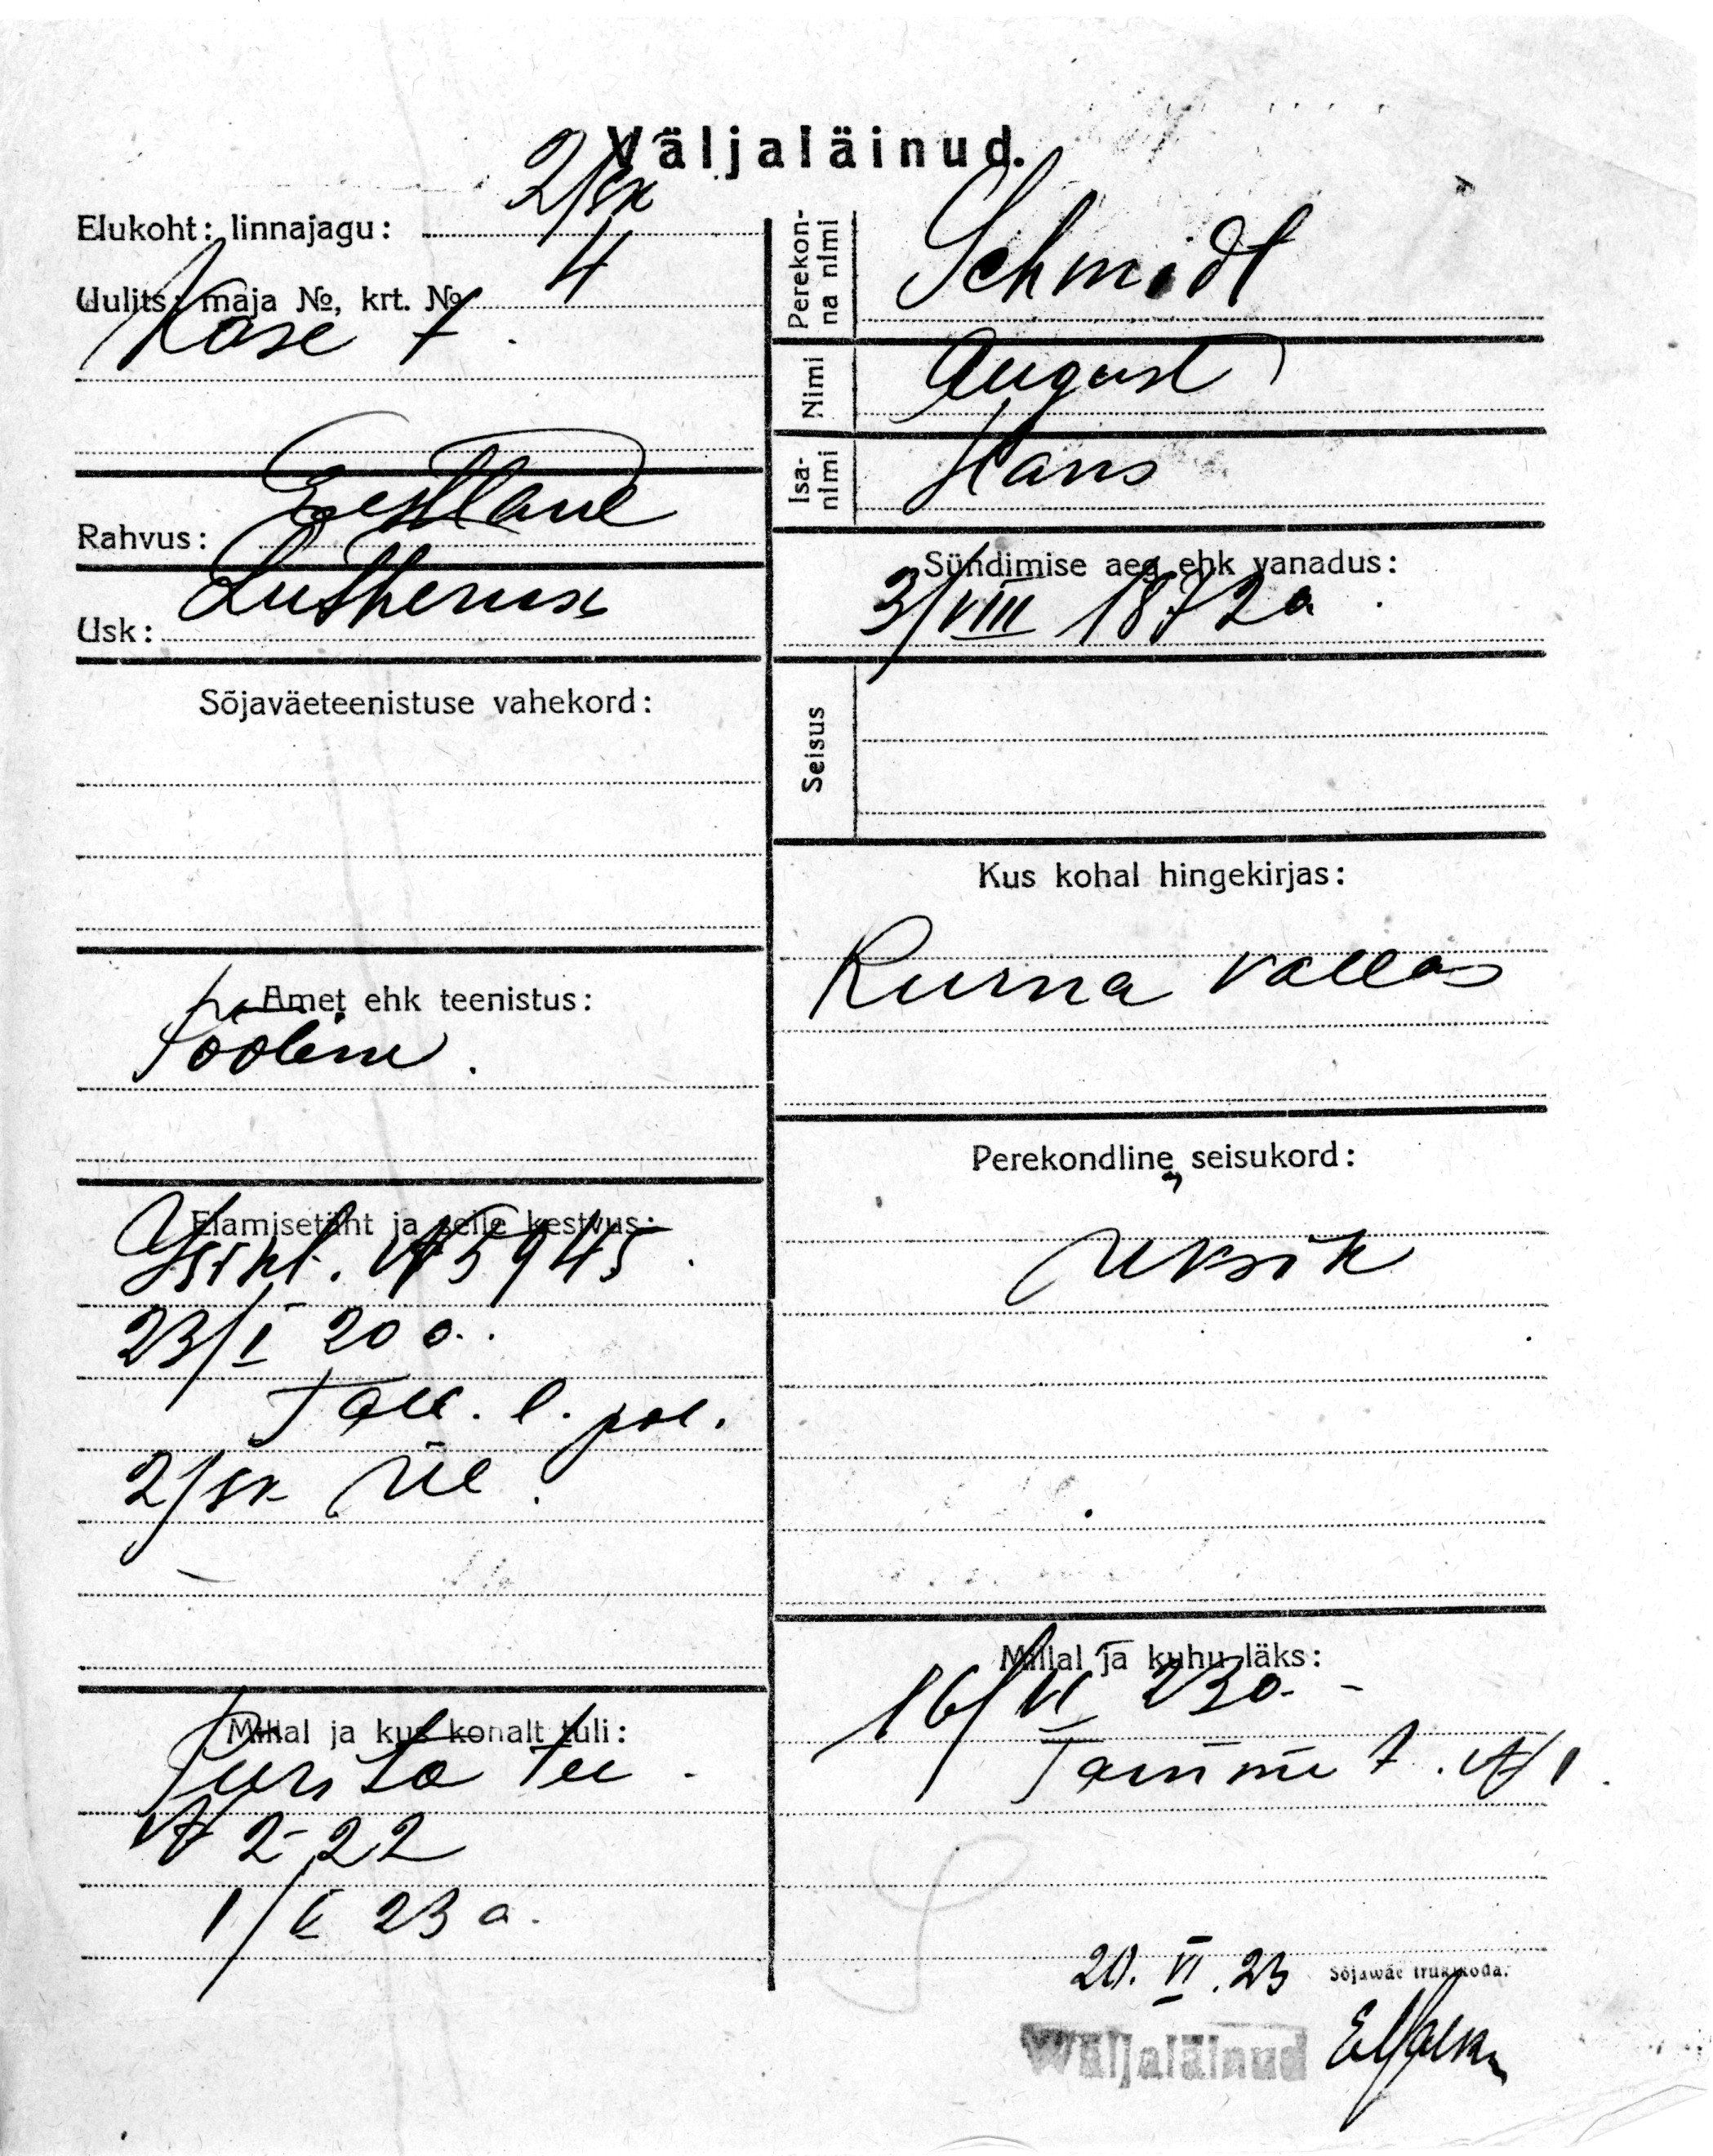 Väljaläinud.
Elukoht: linnajagu: 2/jsk
Uulits, maja №, krt. № 4
Kose t.
Rahvus: Eestlane
Usk: Lutherusk
Sõjaväeteenistuse vahekord:
Amet ehk teenistus:
Tööline.
Elamisetäht ja selle kestvus:
Isikt. № 5945.
23/I 20 a.
Tall. l. pol.
2/jsk
Millal ja kus kohalt tuli:
Pirita tee
№ 2-22
1/V 23 a.
Perekonna nimi Schmidt
Nimi August
Isanimi Hans
Sündimise aeg ehk vanadus:
3/VIII 1872 a.
Seisus
Kus kohal hingekirjas:
Kurna vallas
Perekondline seisukord:
üksik
Millal ja kuhu läks:
16/VI 23 a. -
Tamme t. № 1.
20. VI. 23
Sõjawäe trükikoda.
Wäljaläinud